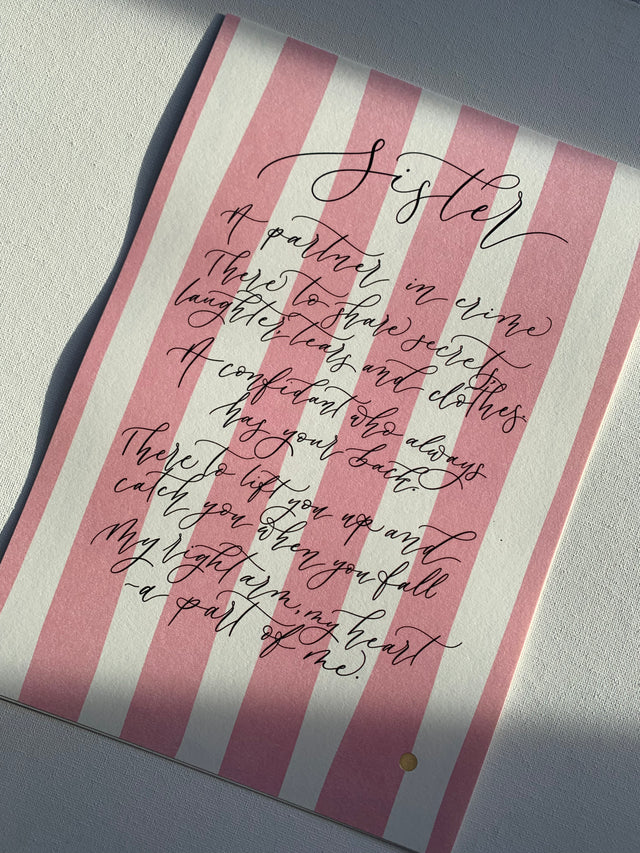 Sister
A partner in crime
There to share secrets,
laughter, tears and clothes.
A confidant who always
has your back.
There to lift you up and
catch you when you fall
My right arm, my heart
~a part of me.